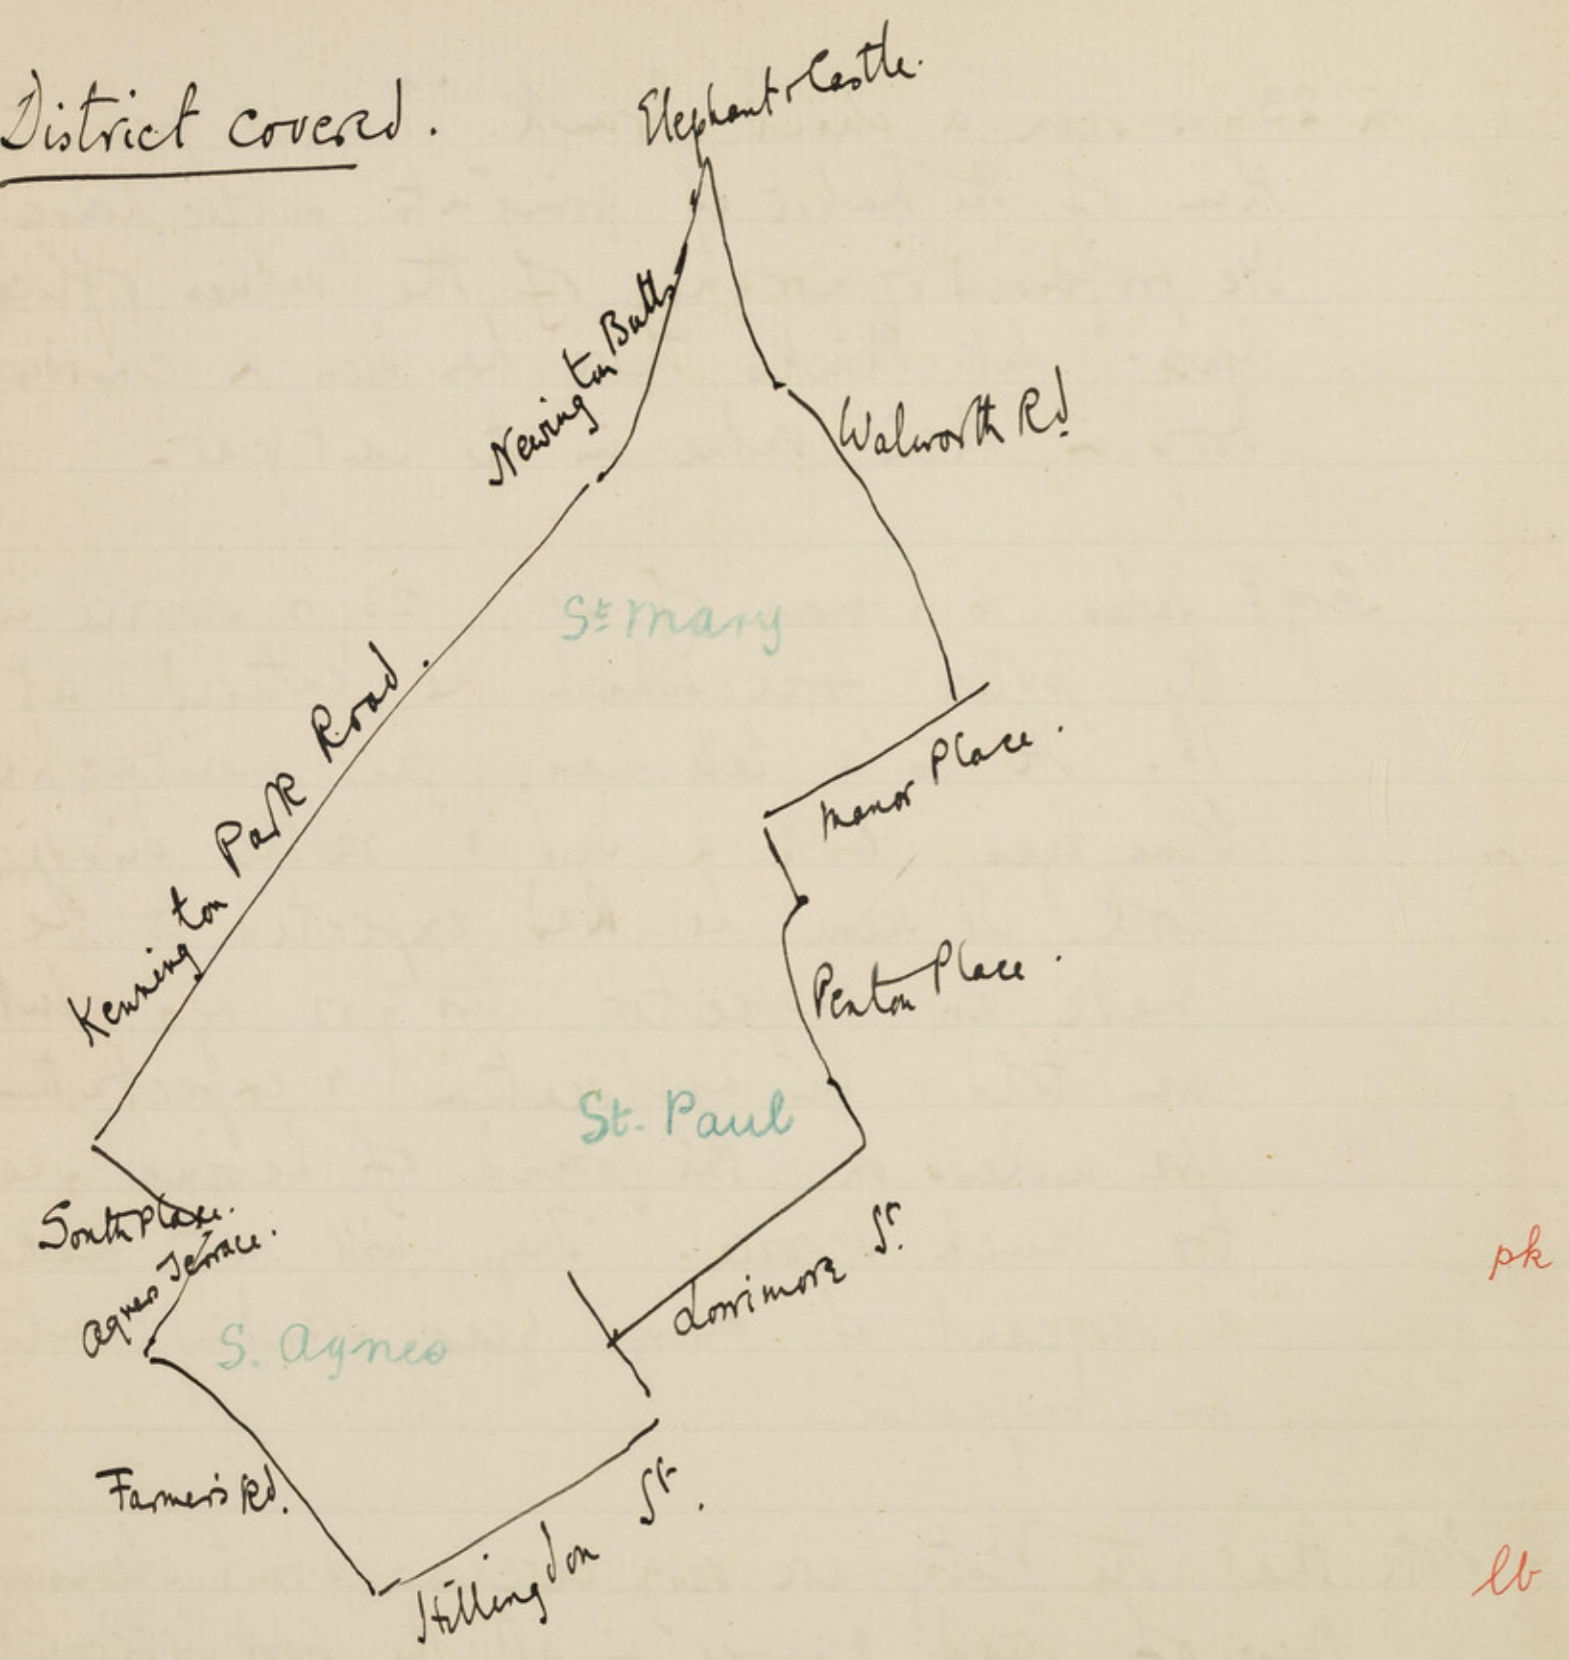 District covered.
Elephant & Castle.
Newington Butts
Walworth Rd
St Mary
Kennington Park Road.
Manor Place.
Penton Place.
St. Paul
South Place.
Agnes Terrace.
Lorrimore St.
S. Agnes
pk
Farmer's Rd.
Hillingdon St.
lb